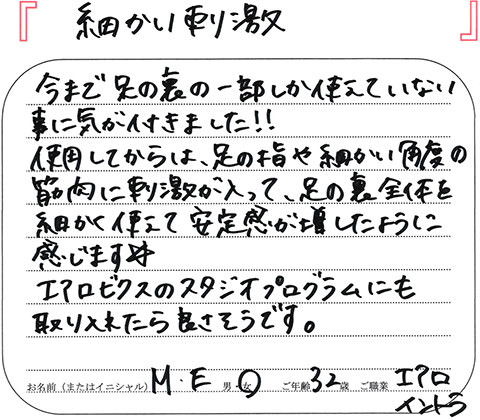 『 細かい刺激 』
今まで足の裏の一部しか使えていない
事に気が付きました!!
使用してからは、足の指や細かい角度の
筋肉に刺激が入って、足の裏全体を
細かく使えて安定感が増したように
感じます
エアロビクスのスタジオプログラムにも
取り入れたら良さそうです。
お名前(またはイニシャル) M.E 男・女 ご年齢 32 歳 ご職業 エアロ
イントラ